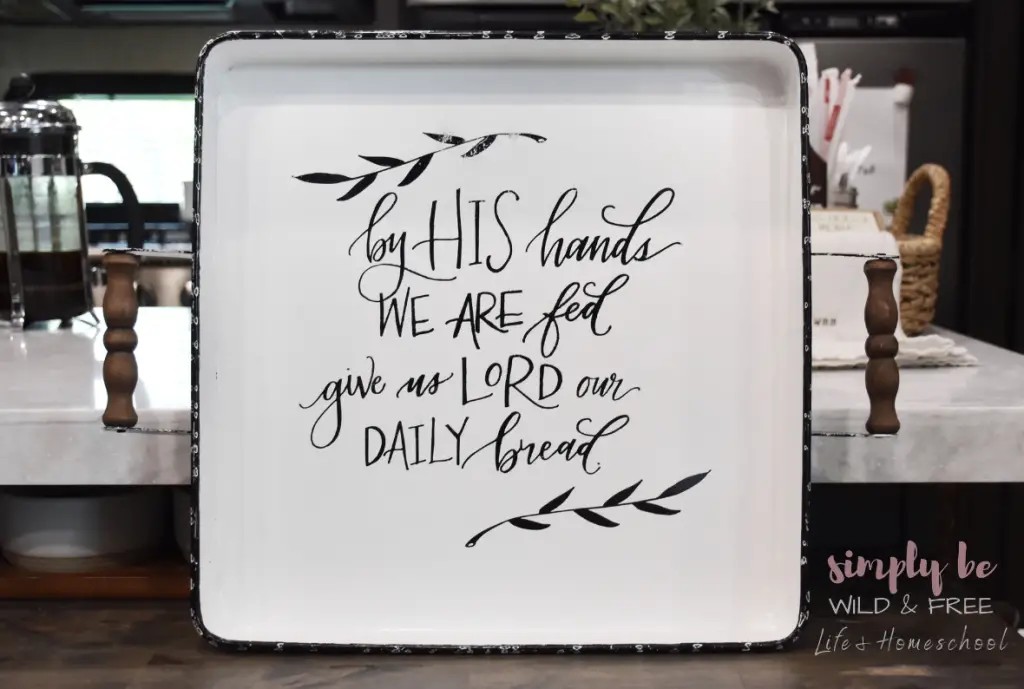 by HIS hands
WE ARE fed
give us LORD our
DAILY bread.
simply be
WILD & FREE
Life & Homeschool